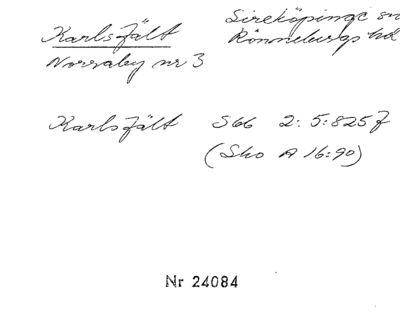 Karlsfält Sireköpinge sn
Norraby nr 3 Rönnebergs hd
Karlsfält S66 2:5:825 f
(Sko A 16:90)
Nr 24084